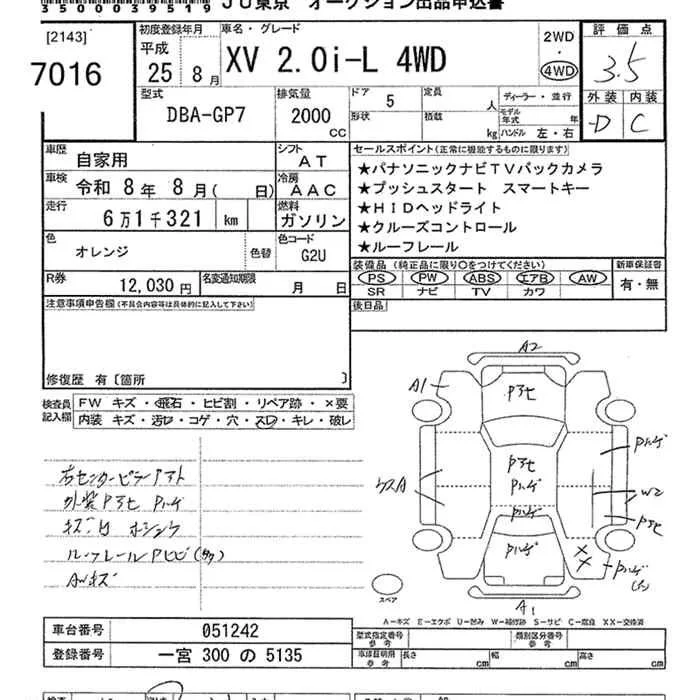 3500039519 JU東京 オークション出品申込書
[2143]
7016
初度登録年月
平成
25 8月
車名・グレード
XV 2.0i-L 4WD
2WD
・
4WD
評価点
3.5
外装 内装
D C
型式
DBA-GP7
排気量
2000
CC
ドア 5
定員 人
形状
積載 kg
ディーラー・並行
モデル年式 年
ハンドル 左・右
車歴
自家用
シフト
AT
車検
令和 8年 8月( 日)
冷房
AAC
走行
6万1千321 km
燃料
ガソリン
色
オレンジ
色替
色コード
G2U
R券
12,030円
名変通知期限
月 日
セールスポイント(正常に機能するものに限ります)
★パナソニックナビTVバックカメラ
★プッシュスタート スマートキー
★HIDヘッドライト
★クルーズコントロール
★ルーフレール
装備品(純正品に限り○をつけてください)
PS PW ABS エアB AW
SR ナビ TV カワ
新車保証書
有・無
後日品
注意事項申告欄(不具合内容等は具体的に記入して下さい)
修復歴 有〔箇所 〕
検査員
記入欄
FW キズ・飛石・ヒビ割・リペア跡・×要
内装 キズ・汚レ・コゲ・穴・スレ・キレ・破レ
右センターピラーアト
外装Pアセ Pハゲ
キズ凹
ルーフレールPヒビ(多)
AWキズ
A2
A1
Pアセ
Pアセ
Pハゲ
Pハゲ
Pハゲ
Pハゲ
W2
Pアセ
Pハゲ
A1
スペア
A-キズ E-エクボ U-凹み W-補修跡 S-サビ C-腐食 XX-交換済
車台番号 051242
登録番号 一宮 300 の 5135
型式指定番号
参考
類別区分番号
参考
車庫証明用
参考
長さ cm 幅 cm 高さ cm